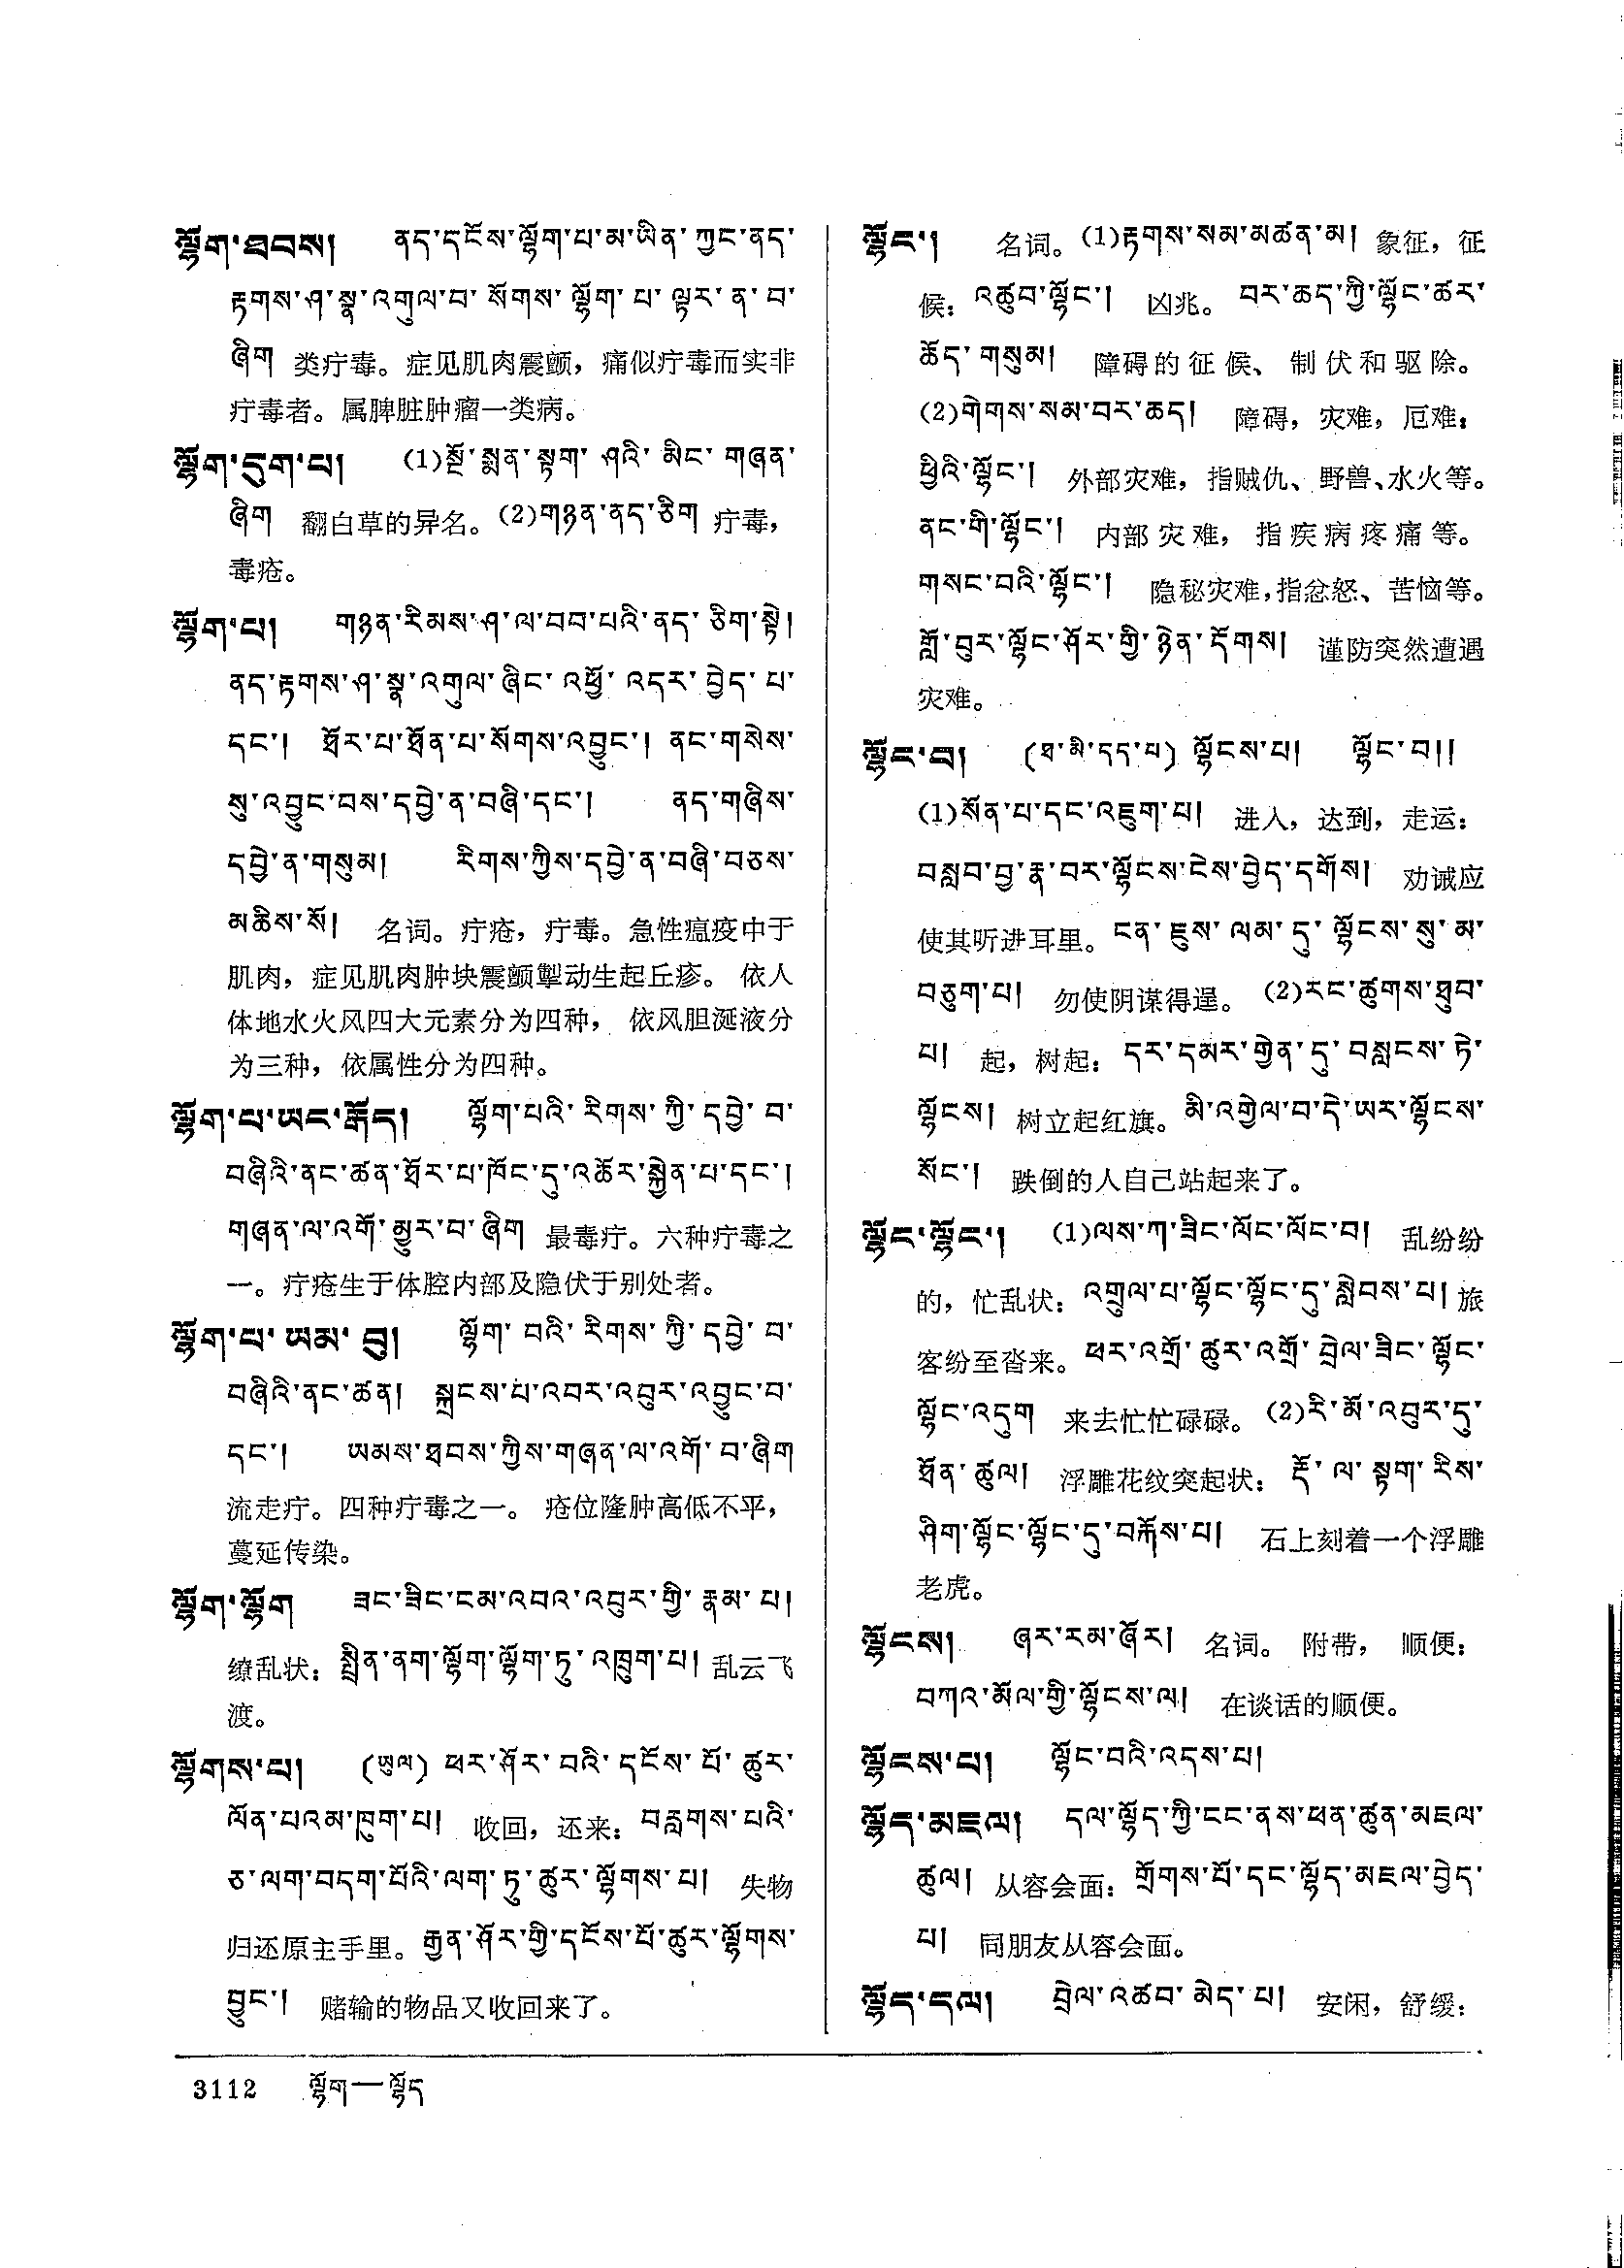 ལྷོག་ཐབས། ནད་དངོས་ལྷོག་པ་མ་ཡིན་ཀྱང་ནད་
རྟགས་ཤ་སྣ་འགུལ་བ་སོགས་ལྷོག་པ་ལྟར་ན་བ་
ཞིག 类疔毒。症见肌肉震颤，痛似疔毒而实非
疔毒者。属脾脏肿瘤一类病。
ལྷོག་དུག་པ། (1)སྔོ་སྨན་སྟག་ཤའི་མིང་གཞན་
ཞིག 翻白草的异名。(2)གཉན་ནད་ཅིག 疔毒，
毒疮。
ལྷོག་པ། གཉན་རིམས་ཤ་ལ་བབ་པའི་ནད་ཅིག་སྟེ།
ནད་རྟགས་ཤ་སྣ་འགུལ་ཞིང་འཕྱོ་འདར་བྱེད་པ་
དང་། ཐོར་པ་ཐོན་པ་སོགས་འབྱུང་། ནང་གསེས་
སུ་འབྱུང་བས་དབྱེ་ན་བཞི་དང་། ནད་གཞིས་
དབྱེ་ན་གསུམ། རིགས་ཀྱིས་དབྱེ་ན་བཞི་བཅས་
མཆིས་སོ། 名词。疔疮，疔毒。急性瘟疫中于
肌肉，症见肌肉肿块震颤掣动生起丘疹。依人
体地水火风四大元素分为四种，依风胆涎液分
为三种，依属性分为四种。
ལྷོག་པ་ཡང་རྒོད། ལྷོག་པའི་རིགས་ཀྱི་དབྱེ་བ་
བཞིའི་ནང་ཚན་ཐོར་པ་ཁོང་དུ་འཚོར་སྐྱེན་པ་དང་།
གཞན་ལ་འགོ་མྱུར་བ་ཞིག 最毒疔。六种疔毒之
一。疔疮生于体腔内部及隐伏于别处者。
ལྷོག་པ་ཡམ་བུ། ལྷོག་བའི་རིགས་ཀྱི་དབྱེ་བ་
བཞིའི་ནང་ཚན། སྐྲངས་པ་འབར་འབུར་འབྱུང་བ་
དང་། ཡམས་ཐབས་ཀྱིས་གཞན་ལ་འགོ་བ་ཞིག
流走疔。四种疔毒之一。疮位隆肿高低不平，
蔓延传染。
ལྷོག་ལྷོག ཟང་ཟིང་ངམ་འབའ་འབུར་གྱི་རྣམ་པ།
缭乱状：སྤྲིན་ནག་ལྷོག་ལྷོག་ཏུ་འཁྲུག་པ། 乱云飞
渡。
ལྷོགས་པ། (ཡུལ) ཕར་ཤོར་བའི་དངོས་པོ་ཚུར་
ལོན་པའམ་ཁུག་པ། 收回，还来：བརླགས་པའི་
ཅ་ལག་བདག་པོའི་ལག་ཏུ་ཚུར་ལྷོགས་པ། 失物
归还原主手里。རྒྱན་ཤོར་གྱི་དངོས་པོ་ཚུར་ལྷོགས་
བྱུང་། 赌输的物品又收回来了。
ལྷོང་། 名词。(1)རྟགས་སམ་མཚན་མ། 象征，征
候：འཚུབ་ལྷོང་། 凶兆。བར་ཆད་ཀྱི་ལྷོང་ཚར་
ཚོད་གསུམ། 障碍的征候、制伏和驱除。
(2)གེགས་སམ་བར་ཆད། 障碍，灾难，厄难：
ཕྱིའི་ལྷོང་། 外部灾难，指贼仇、野兽、水火等。
ནང་གི་ལྷོང་། 内部灾难，指疾病疼痛等。
གསང་བའི་ལྷོང་། 隐秘灾难，指忿怒、苦恼等。
གློ་བུར་ལྷོང་ཤོར་གྱི་ཉེན་དོགས། 谨防突然遭遇
灾难。
ལྷོང་བ། (ཐ་མི་དད་པ) ལྷོངས་པ། ལྷོང་བ།།
(1)སོན་པ་དང་འཇུག་པ། 进入，达到，走运：
བསླབ་བྱ་རྣ་བར་ལྷོངས་ངེས་བྱེད་དགོས། 劝诫应
使其听进耳里。ངན་ཇུས་ལམ་དུ་ལྷོངས་སུ་མ་
བཅུག་པ། 勿使阴谋得逞。(2)རང་ཚུགས་ཐུབ་
པ། 起，树起：དར་དམར་གྱེན་དུ་བསླངས་ཏེ་
ལྷོངས། 树立起红旗。མི་འགྱེལ་བ་དེ་ཡར་ལྷོངས་
སོང་། 跌倒的人自己站起来了。
ལྷོང་ལྷོང་། (1)ལས་ཀ་ཟིང་ལོང་ལོང་བ། 乱纷纷
的，忙乱状：འགྲུལ་པ་ལྷོང་ལྷོང་དུ་སླེབས་པ། 旅
客纷至沓来。ཕར་འགྲོ་ཚུར་འགྲོ་བྲེལ་ཟིང་ལྷོང་
ལྷོང་འདུག 来去忙忙碌碌。(2)རི་མོ་འབུར་དུ་
ཐོན་ཚུལ། 浮雕花纹突起状：རྡོ་ལ་སྟག་རིས་
ཤིག་ལྷོང་ལྷོང་དུ་བརྐོས་པ། 石上刻着一个浮雕
老虎。
ལྷོངས། ཞར་རམ་ཞོར། 名词。附带，顺便：
བཀའ་མོལ་གྱི་ལྷོངས་ལ། 在谈话的顺便。
ལྷོངས་པ། ལྷོང་བའི་འདས་པ།
ལྷོད་མཇལ། དལ་ལྷོད་ཀྱི་ངང་ནས་ཕན་ཚུན་མཇལ་
ཚུལ། 从容会面：གྲོགས་པོ་དང་ལྷོད་མཇལ་བྱེད་
པ། 同朋友从容会面。
ལྷོད་དལ། བྲེལ་འཚབ་མེད་པ། 安闲，舒缓：
3112 ལྷོག—ལྷོད